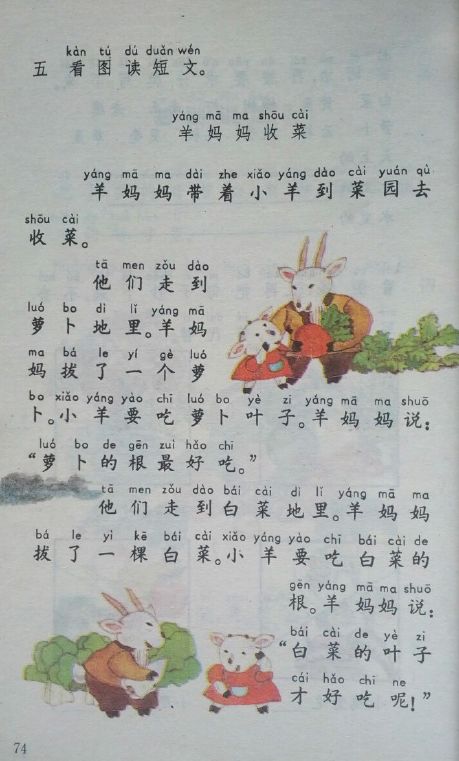 kàn tú dú duǎn wén
五 看图读短文。
yáng mā ma shōu cài
羊妈妈收菜
yáng mā ma dài zhe xiǎo yáng dào cài yuán qù
羊妈妈带着小羊到菜园去
shōu cài
收菜。
tā men zǒu dào
他们走到
luó bo dì lǐ yáng mā
萝卜地里。羊妈
ma bá le yí gè luó
妈拔了一个萝
bo xiǎo yáng yào chī luó bo yè zi yáng mā ma shuō
卜。小羊要吃萝卜叶子。羊妈妈说:
luó bo de gēn zuì hǎo chī
“萝卜的根最好吃。”
tā men zǒu dào bái cài dì lǐ yáng mā ma
他们走到白菜地里。羊妈妈
bá le yì kē bái cài xiǎo yáng yào chī bái cài de
拔了一棵白菜。小羊要吃白菜的
gēn yáng mā ma shuō
根。羊妈妈说:
bái cài de yè zi
“白菜的叶子
cái hǎo chī ne
才好吃呢!”
74